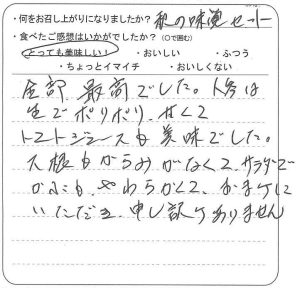 ・何をお召し上がりになりましたか？ 秋の味覚セット
・食べたご感想はいかがでしたか？（○で囲む）
・とっても美味しい！ ・おいしい ・ふつう
・ちょっとイマイチ ・おいしくない
全部 最高でした。人参は
生でポリポリ、甘くて
トマトジュースも美味でした。
大根もからみがなくて、サラダで
かぶも、やわらかくて、おまけに
いただき、申し訳けありません